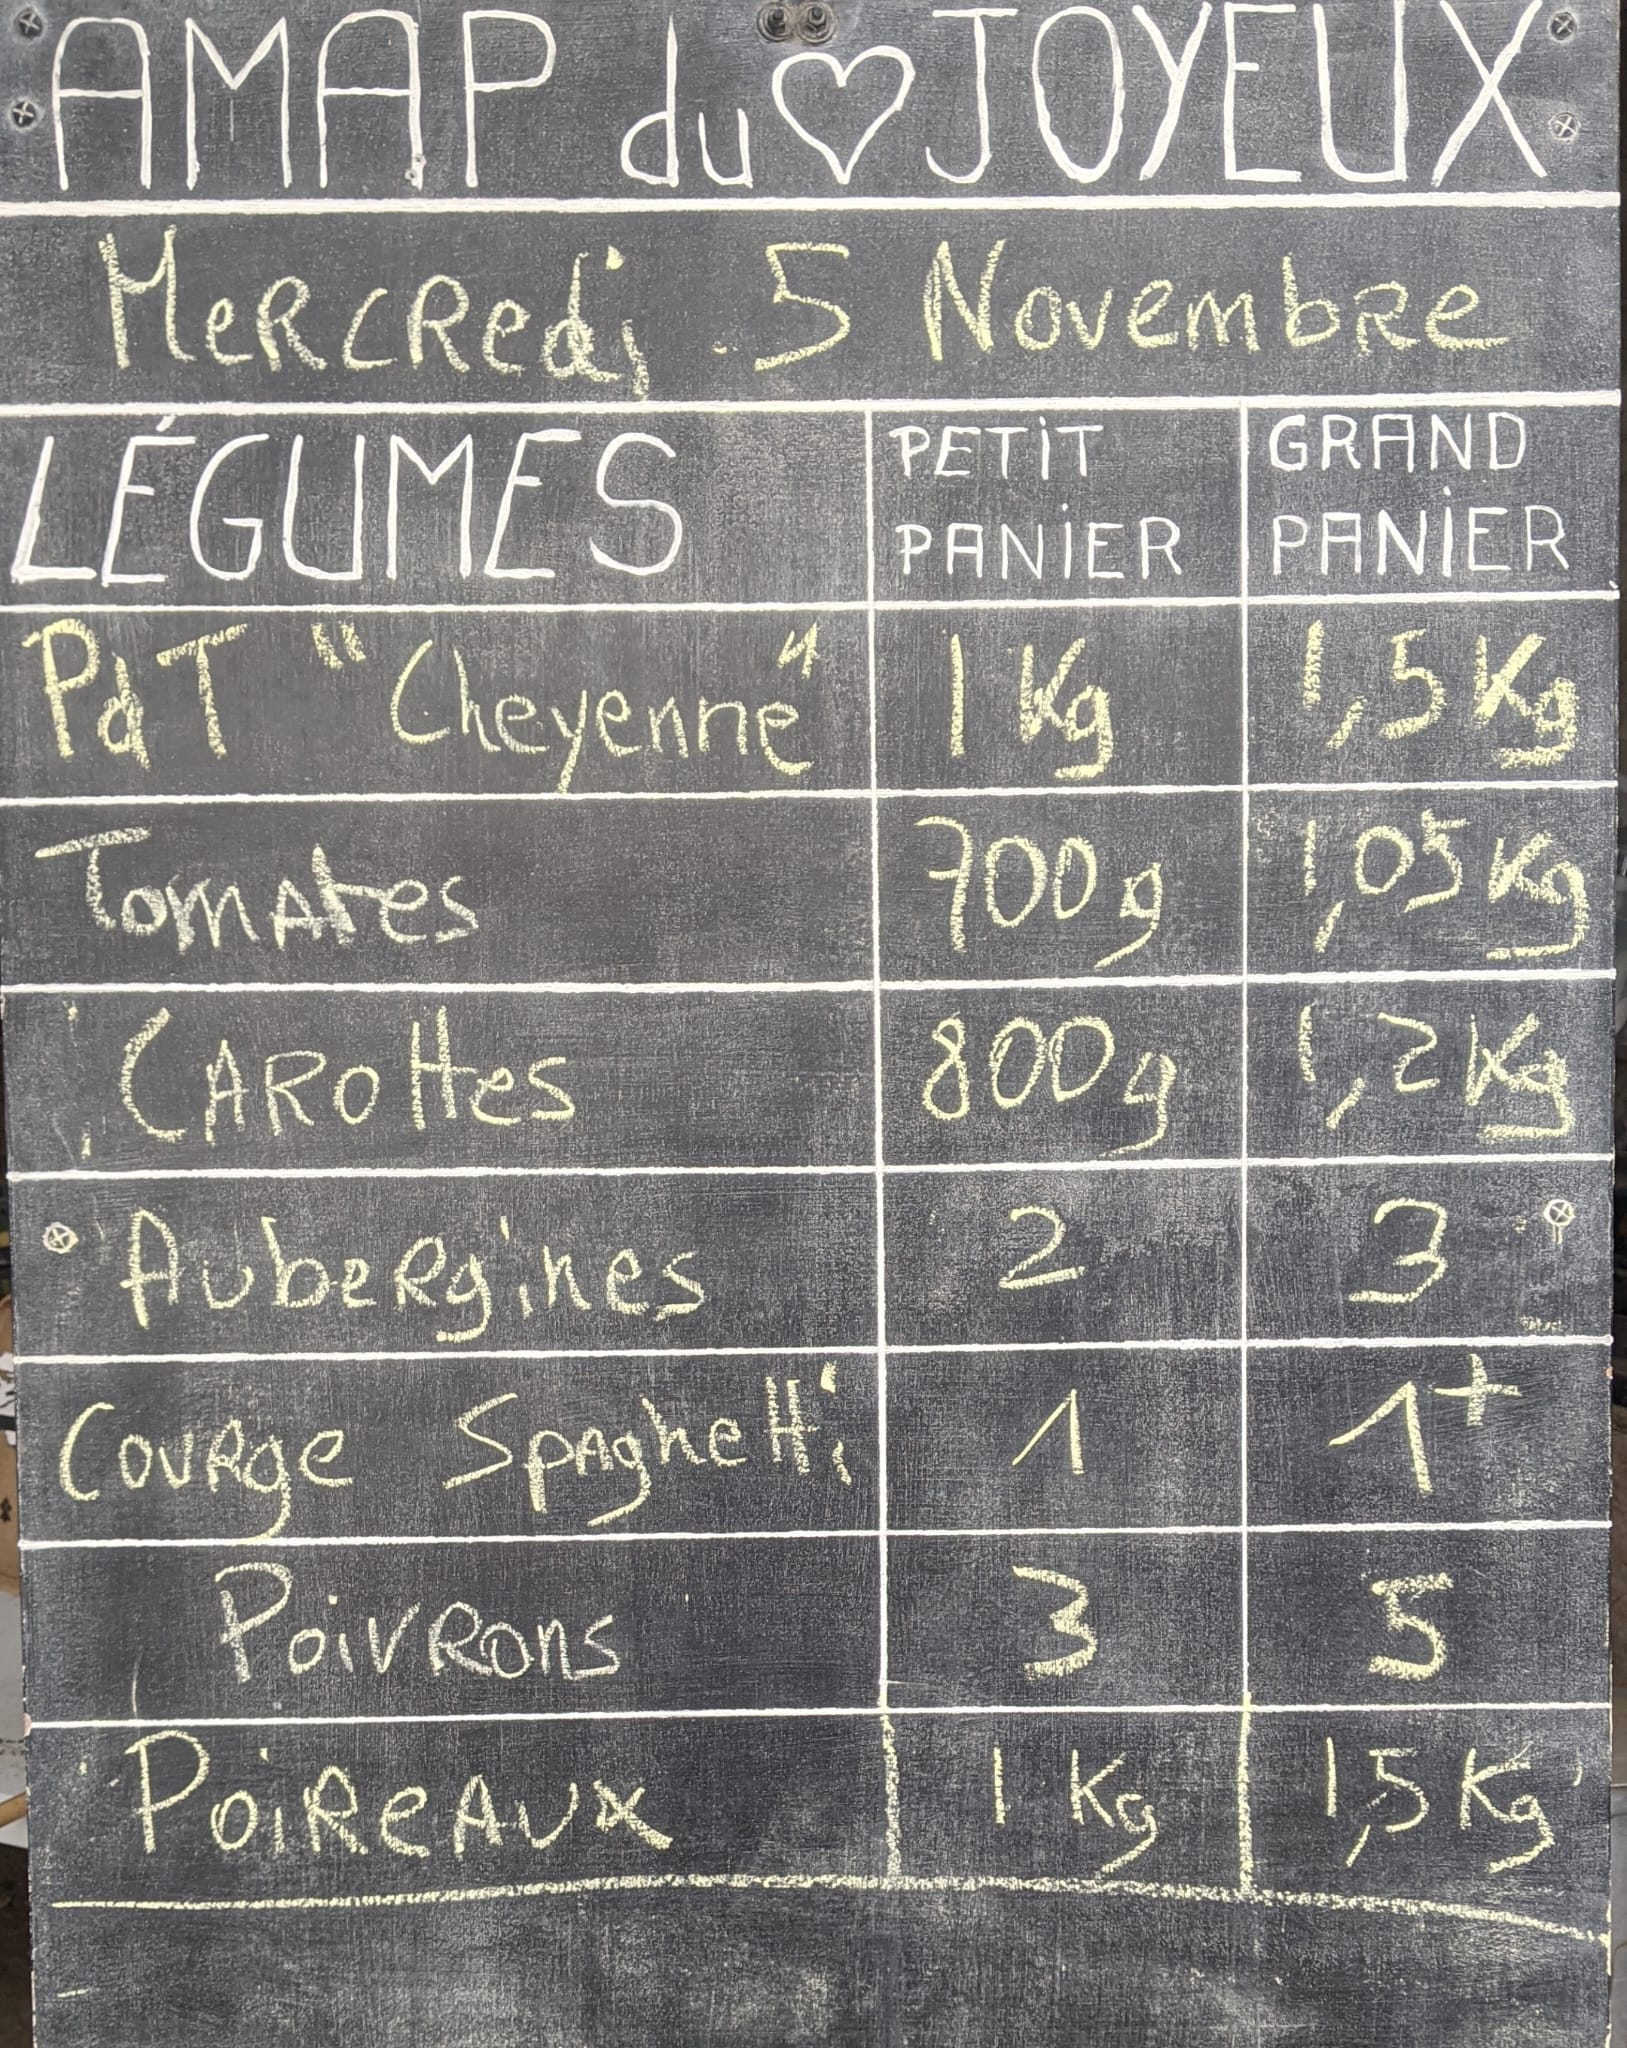 AMAP du ♡ JOYEUX
Mercredi 5 Novembre
LÉGUMES PETIT PANIER GRAND PANIER
PdT "Cheyenne" 1 Kg 1,5 Kg
Tomates 700 g 1,05 Kg
Carottes 800 g 1,2 Kg
Aubergines 2 3
Courge Spaghetti 1 1+
Poivrons 3 5
Poireaux 1 Kg 1,5 Kg